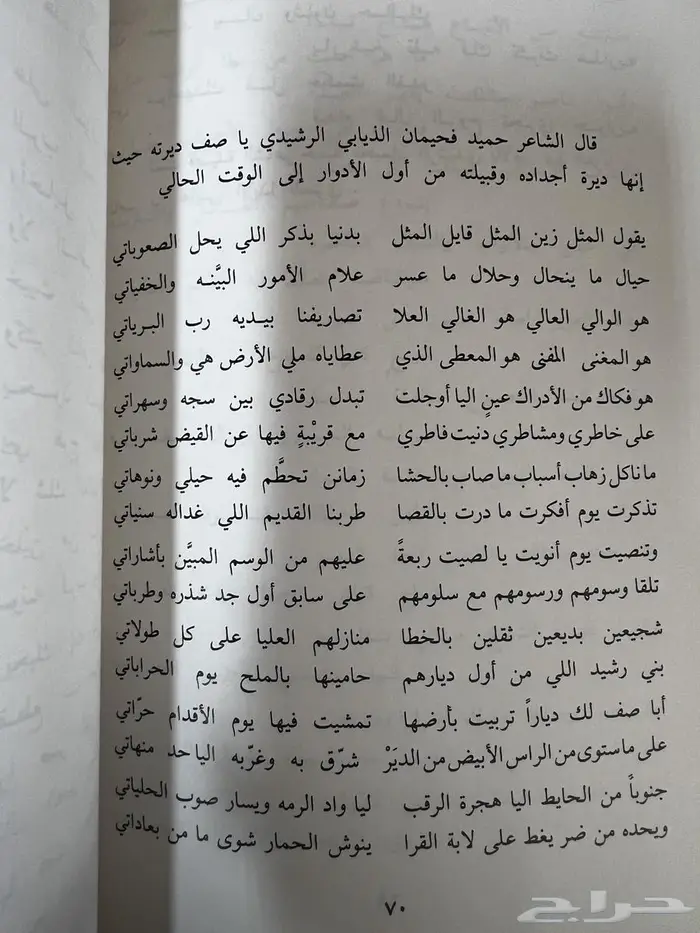 قال الشاعر حميد فحيمان الذيابي الرشيدي يا صف ديرته حيث
إنها ديرة أجداده وقبيلته من أول الأدوار إلى الوقت الحالي
يقول المثل زين المثل قايل المثل بدنيا بذكر اللي يحل الصعوباتي
حيال ما ينحال وحلال ما عسر علام الأمور البيَّنه والخفياتي
هو الوالي العالي هو الغالي العلا تصاريفنا بيديه رب البرياتي
هو المغنى المفنى هو المعطى الذي عطاياه ملي الأرض هي والسماواتي
هو فكاك من الأدراك عينٍ اليا أوجلت تبدل رقادي بين سجه وسهراتي
على خاطري ومشاطري دنيت فاطري مع قريْبةٍ فيها عن القيض شرباتي
ما ناكل زهاب أسباب ما صاب بالحشا زمانن تحطَّم فيه حيلي ونوهاتي
تذكرت يوم أفكرت ما درت بالقصا طربنا القديم اللي غداله سنياتي
وتنصيت يوم أنويت يا لصيت ربعةً عليهم من الوسم المبيَّن بأشاراتي
تلقا وسومهم ورسومهم مع سلومهم على سابق أول جد شذره وطرباتي
شجيعين بديعين ثقلين بالخطا منازلهم العليا على كل طولاتي
بني رشيد اللي من أول ديارهم حامينها بالملح يوم الحراباتي
أبا صف لك دياراً تربيت بأرضها تمشيت فيها يوم الأقدام حرّاتي
على ما ستوى من الراس الأبيض من الديَرْ شرّق به وغرّبه اليا حد منهاتي
جنوباً من الحايط اليا هجرة الرقب ليا واد الرمه ويسار صوب الحلياتي
ويحده من ضر يغط على لابة القرا ينوش الحمار شوى ما من بعاداتي
٧٠
حراج